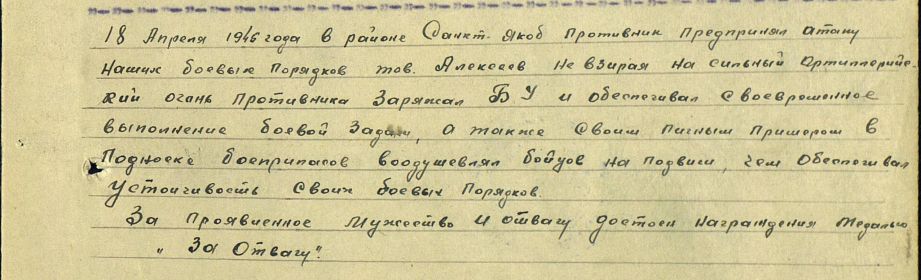 18 Апреля 1945 года в районе Санкт-Якоб Противник Предпринял атаку
наших боевых Порядков тов. Алексеев Не взирая на сильный Артиллерийс-
кий огонь Противника Заряжал БУ и обеспечивал Своевременное
выполнение боевой Задачи, а также Своим Личным Примером в
Подноске боеприпасов воодушевлял бойцов на подвиги, чем Обеспечивал
Устойчивость Своих боевых Порядков.
За Проявленное Мужество и отвагу достоен награждения Медалью
„За Отвагу".